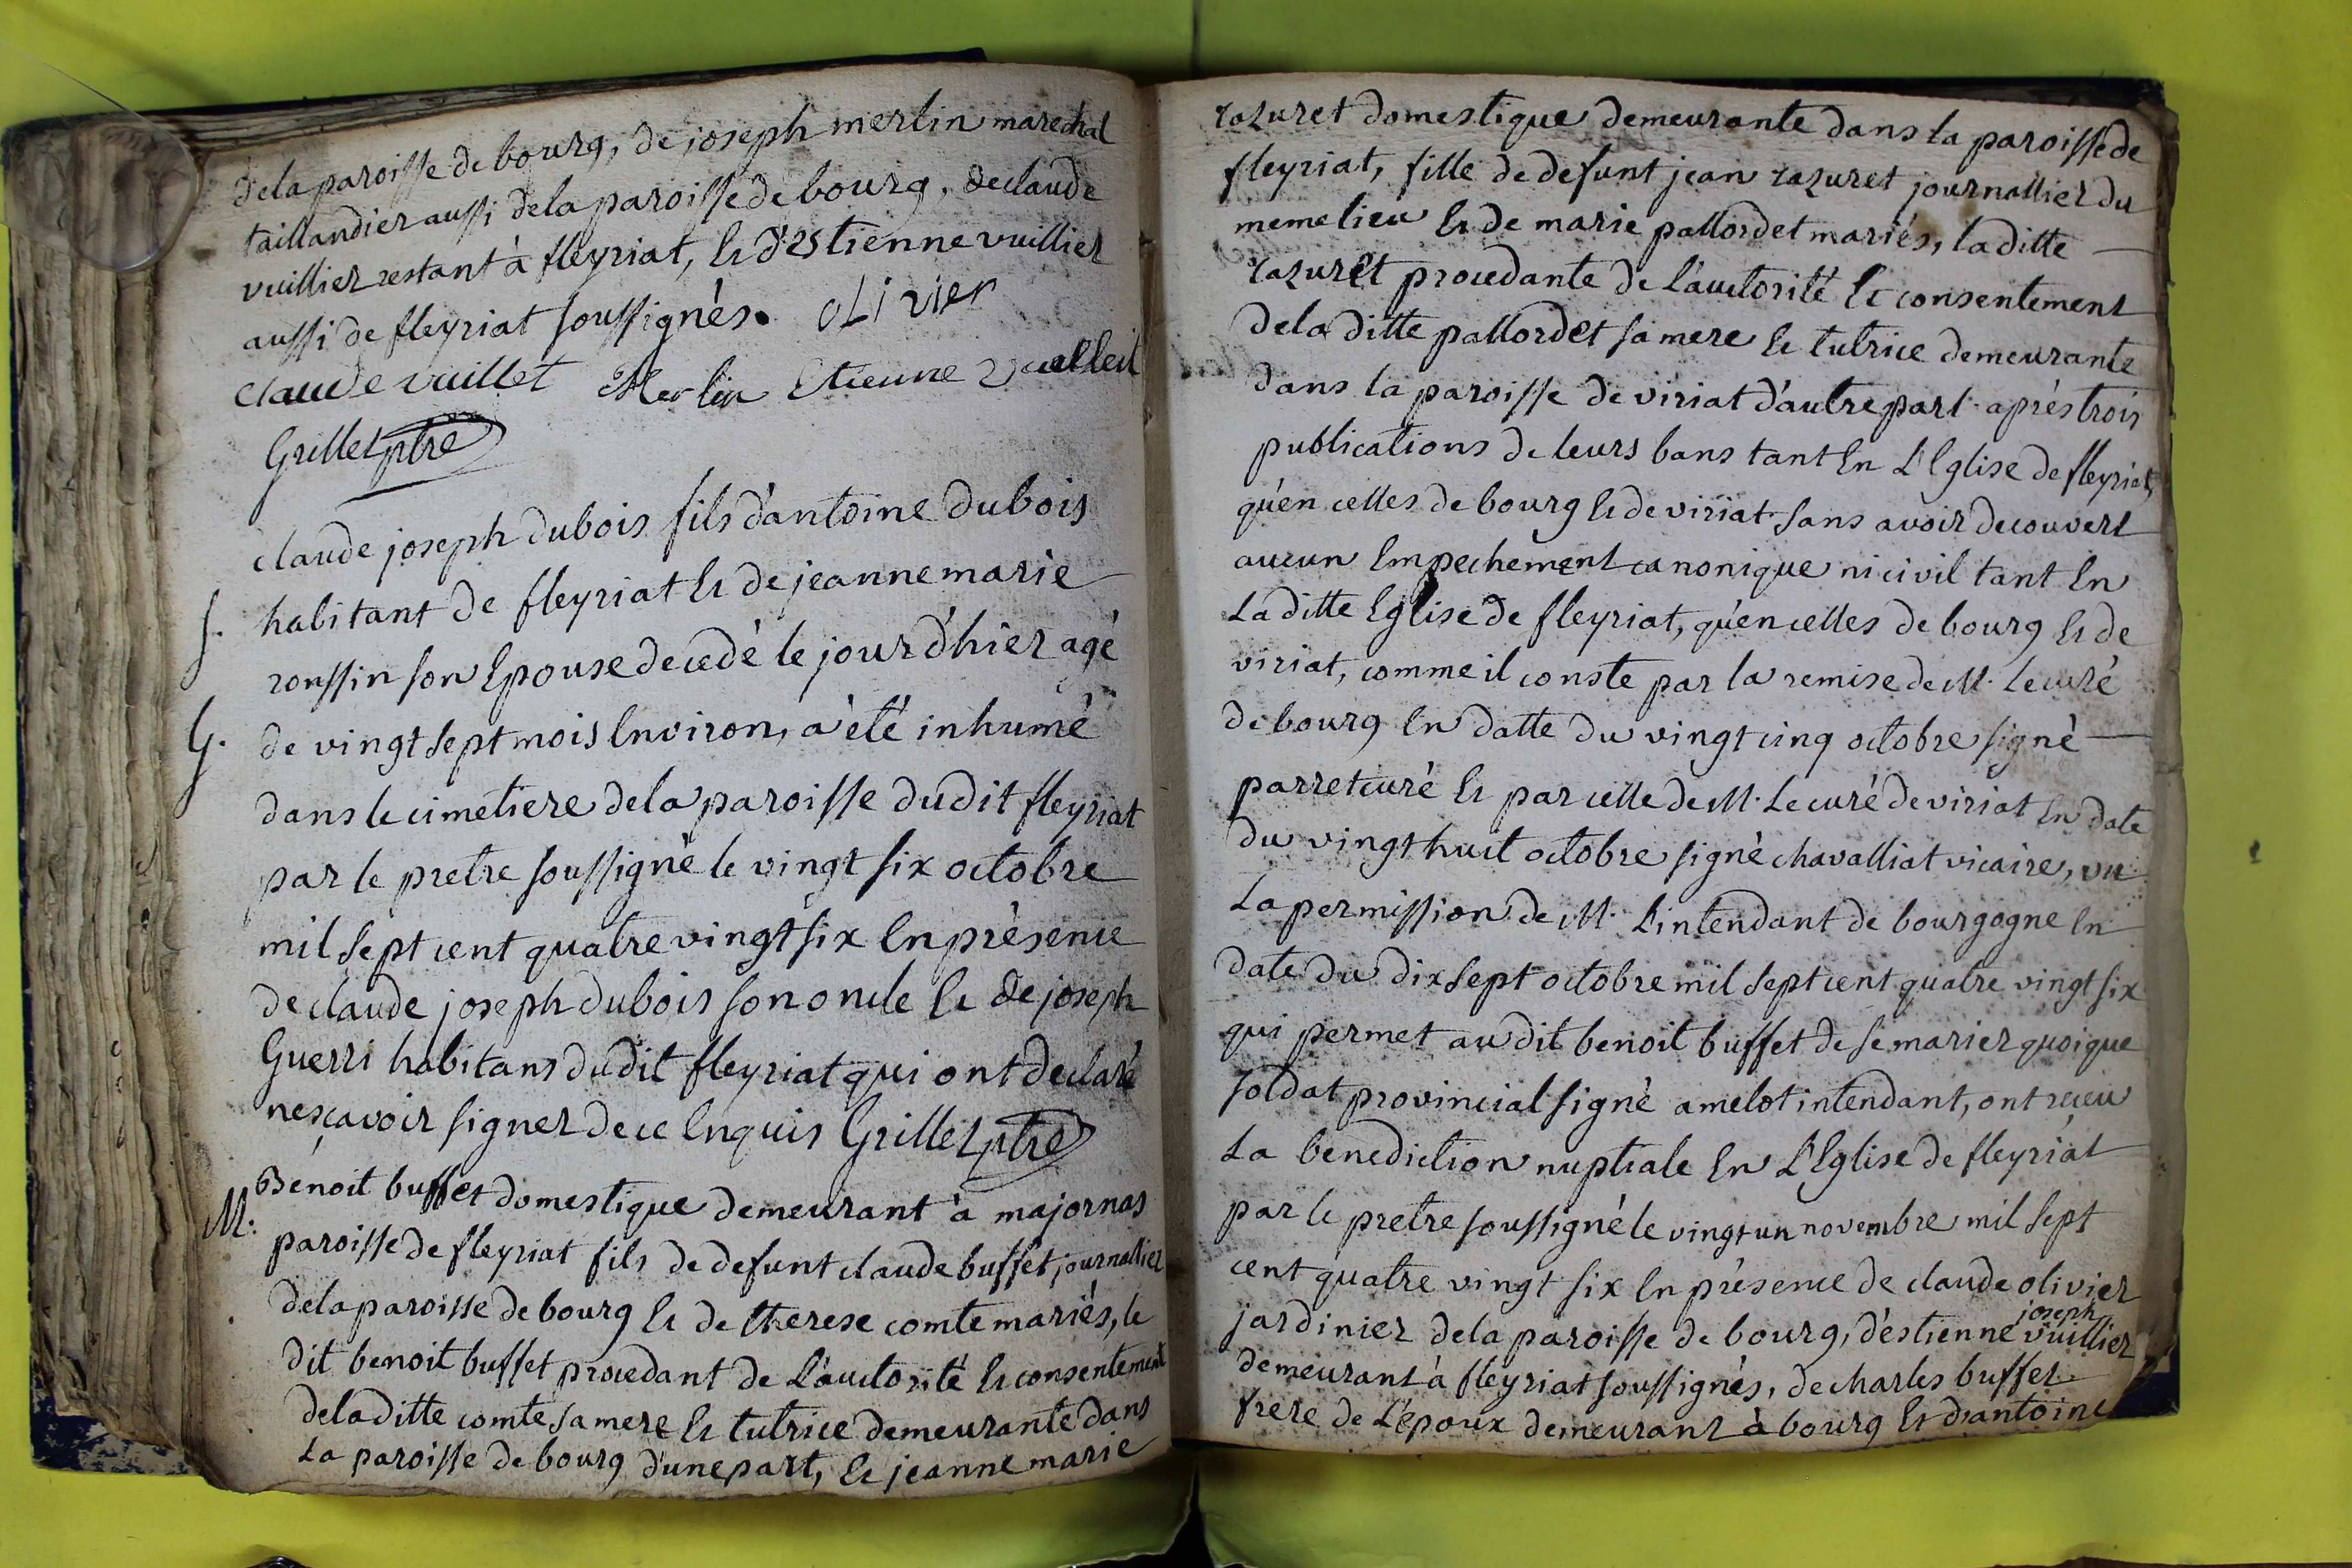 dela paroisse de bourg, de joseph merlin marechal
taillandier aussi dela paroisse de bourg, de claude
vuillier restant à fleyriat, et d'estienne vuillier
aussi de fleyriat soussignès. OLivier
claude vuillet Merlin Etienne
Grillet ptre
claude joseph dubois fils d'antoine dubois
S. habitant de fleyriat et de jeanne marie
roussin son Epouse decedè le jour d'hier agé
G. de vingt sept mois Environ, a èté inhumè
dans le cimetiere dela paroisse dudit fleyriat
par le pretre soussignè le vingt six octobre
mil sept cent quatre vingt six En prèsence
de claude joseph dubois son oncle et de joseph
Guerri habitans dudit fleyriat qui ont declaré
nesçavoir signer de ce Enquis Grillet ptre
Bénoit buffet domestique demeurant à majornas
M. paroisse de fleyriat fils de defunt claude buffet journallier
dela paroisse de bourg et de therese comte mariés, le
dit benoit buffet procedant de L'auctorité et consentement
deladitte comte sa mere et tutrice demeurante dans
La paroisse de bourg d'une part, et jeanne marie
razuret domestique demeurante dans la paroisse de
fleyriat, fille de defunt jean razuret journallier du
meme lieu et de marie pallordet mariés, laditte
razuret procedante de L'auctorité et consentement
dela ditte pallordet sa mere et tutrice demeurante
dans la paroisse de viriat d'autre part. après trois
publications de leurs bans tant En L'Eglise de fleyriat,
qu'en celles de bourg et de viriat sans avoir decouvert
aucun Empechement canonique ni civil tant En
Laditte Eglise de fleyriat, qu'en celles de bourg et de
viriat, comme il conste par la remise de M. Le curé
de bourg En datte du vingt cinq octobre signè
parret curé et par celle de M. Le curé de viriat En date
du vingt huit octobre signè chavalliat vicaire, vu
La permission de M. L'intendant de bourgogne En
date du dix sept octobre mil sept cent quatre vingt six
qui permet audit benoit buffet de se marier quoique
soldat provincial signè amelot intendant, ont receu
La benediction nuptiale En L'Eglise de fleyriat
par le pretre soussigné le vingt un novembre mil sept
cent quatre vingt six En prèsence de claude olivier
jardinier dela paroisse de bourg, d'éstienne joseph vuillier
demeurant à fleyriat soussignés, de charles buffet
frere de L'epoux demeurant à bourg et d'antoine